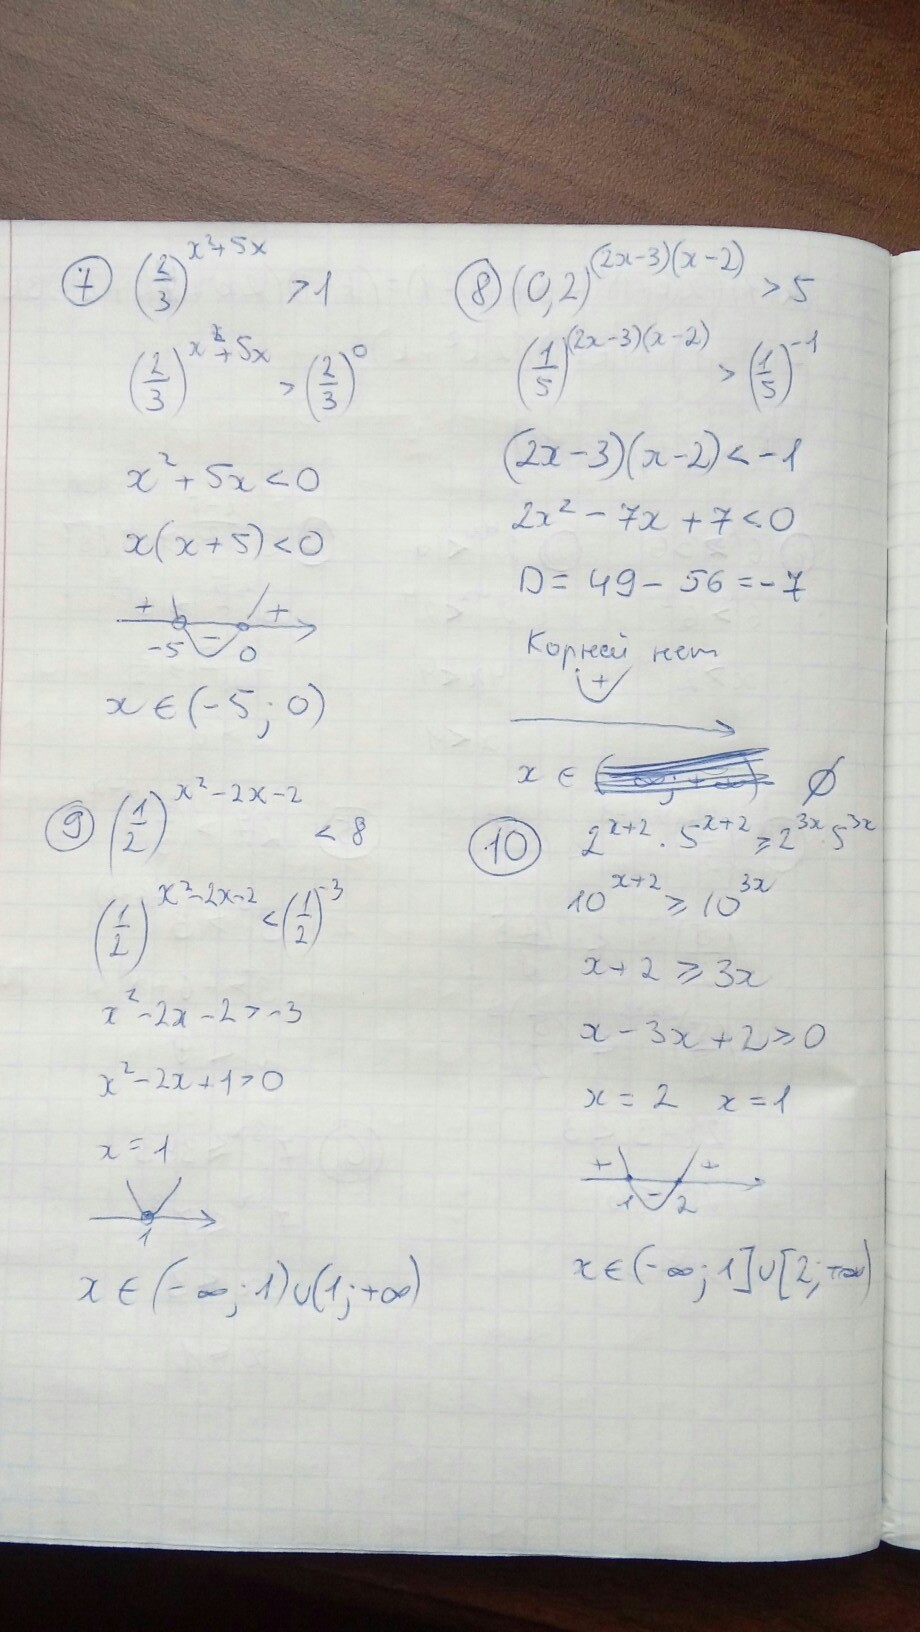 7 (2/3)^(x²+5x) > 1
(2/3)^(x²+5x) > (2/3)^0
x² + 5x < 0
x(x+5) < 0
+ - +
-5 0
x ∈ (-5; 0)
8 (0,2)^((2x-3)(x-2)) > 5
(1/5)^((2x-3)(x-2)) > (1/5)^(-1)
(2x-3)(x-2) < -1
2x² - 7x + 7 < 0
D = 49 - 56 = -7
Корней нет
+
x ∈ ∅
9 (1/2)^(x²-2x-2) < 8
(1/2)^(x²-2x-2) < (1/2)^(-3)
x² - 2x - 2 > -3
x² - 2x + 1 > 0
x = 1
1
x ∈ (-∞; 1) ∪ (1; +∞)
10 2^(x+2) · 5^(x+2) ⩾ 2^(3x) · 5^(3x)
10^(x+2) ⩾ 10^(3x)
x + 2 ⩾ 3x
x - 3x + 2 ⩾ 0
x = 2 x = 1
+ - +
1 2
x ∈ (-∞; 1] ∪ [2; +∞)